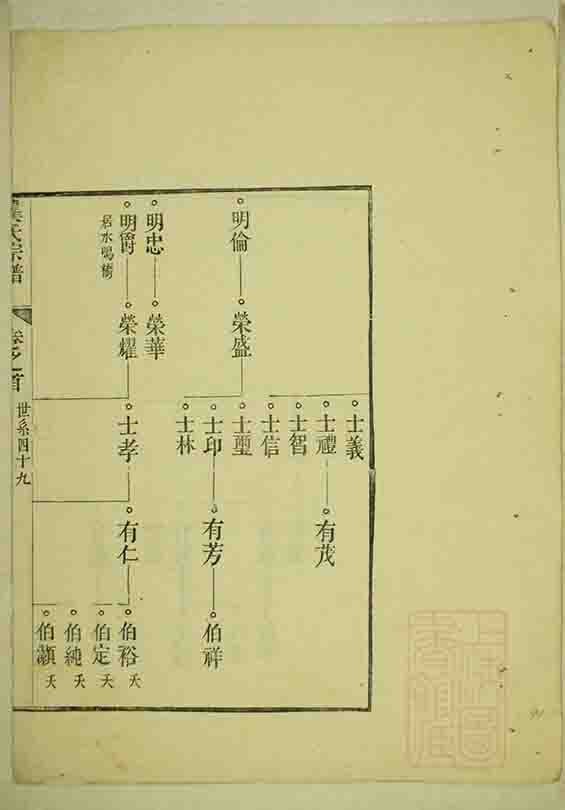 士義
士禮
有茂
士智
士信
明倫
榮盛
士璽
士印
有芳
伯祥
士林
明忠
榮華
明爵
榮耀
士孝
有仁
伯裕 夭
伯定 夭
伯純 夭
伯顥 夭
氏宗譜
卷之首
世系四十九